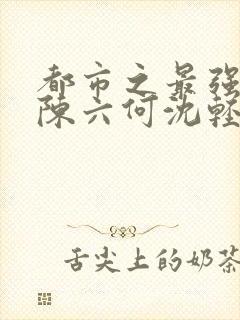 都市之最强
陈六何沈轻
舌尖上的奶茶